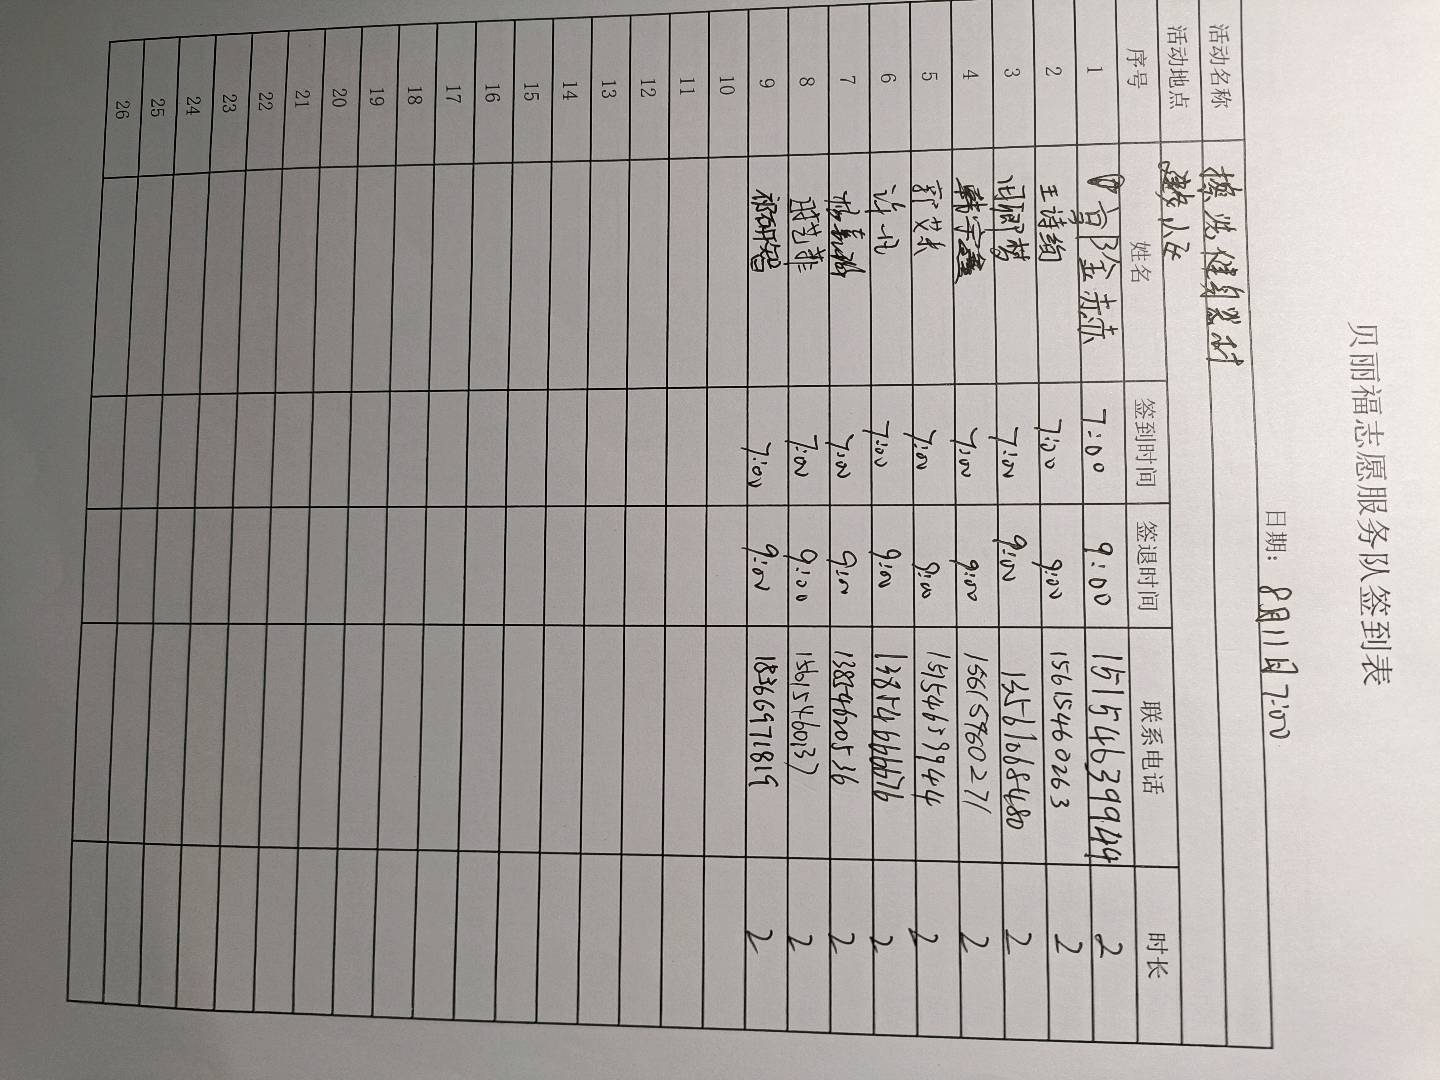 贝丽福志愿服务队签到表
日期: 8月11日7:00
活动名称 擦洗健身器材
活动地点
序号 姓名 签到时间 签退时间 联系电话 时长
1 7:00 9:00 15154639944 2
2 王诗绚 7:00 9:00 15615460263 2
3 7:00 9:00 13561068480 2
4 韩宇鑫 7:00 9:00 15615960271 2
5 郭艾 7:00 9:00 15154659944 2
6 许凡 7:00 9:00 13854666676 2
7 7:00 9:00 13854620536 2
8 时艺菲 7:00 9:00 15615460137 2
9 祁研智 7:00 9:00 18366971819 2
10
11
12
13
14
15
16
17
18
19
20
21
22
23
24
25
26